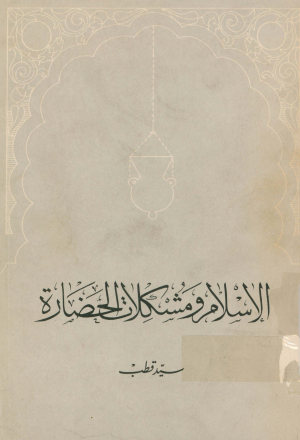 الإسلام ومشكلات الحضارة
سيّد قطب